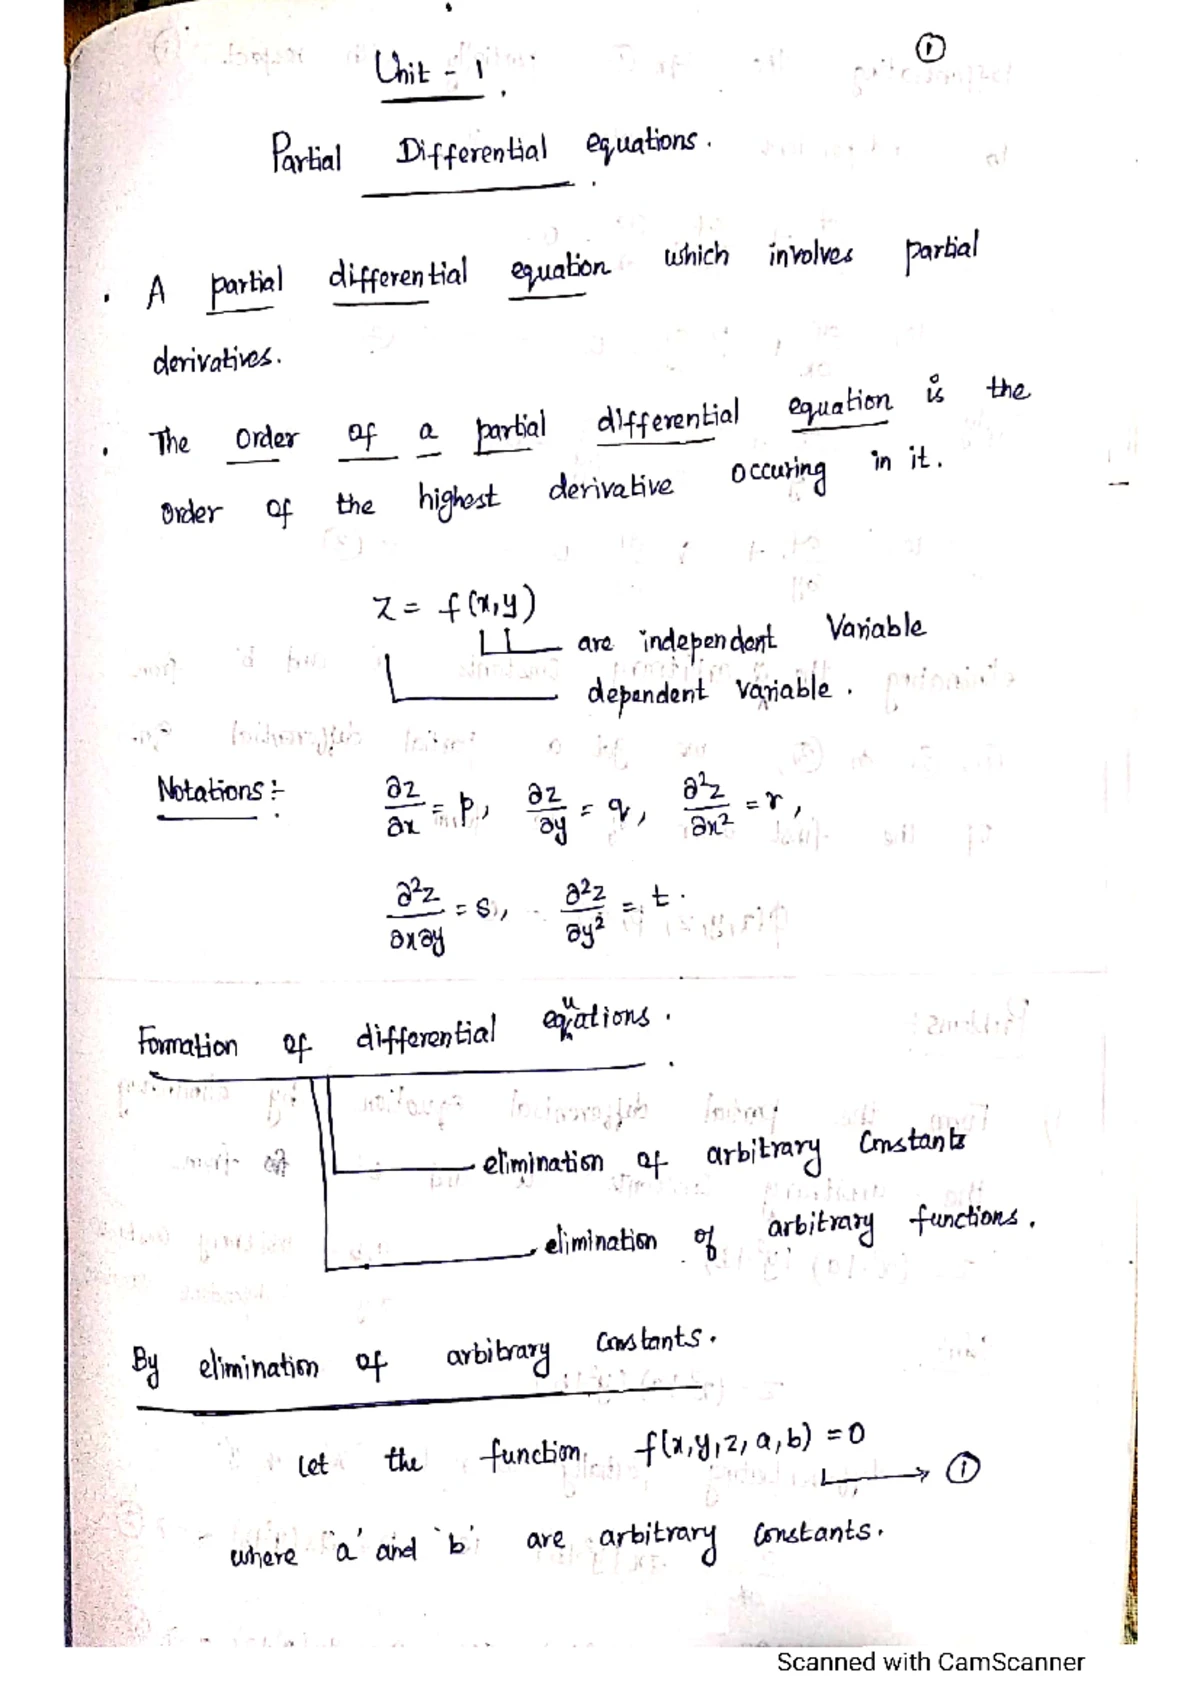 ①
Unit - 1
Partial Differential equations.
• A partial differential equation which involves partial
derivatives.
• The order of a partial differential equation is the
order of the highest derivative occuring in it.
z = f(x,y)
are independent Variable
dependent variable.
Notations :- ∂z/∂x = p, ∂z/∂y = q, ∂²z/∂x² = r,
∂²z/∂x∂y = s, ∂²z/∂y² = t.
Formation of differential equations.
elimination of arbitrary Constants
elimination of arbitrary functions.
By elimination of arbitrary Constants.
Let the function f(x,y,z,a,b) = 0
→ ①
where 'a' and 'b' are arbitrary Constants.
Scanned with CamScanner